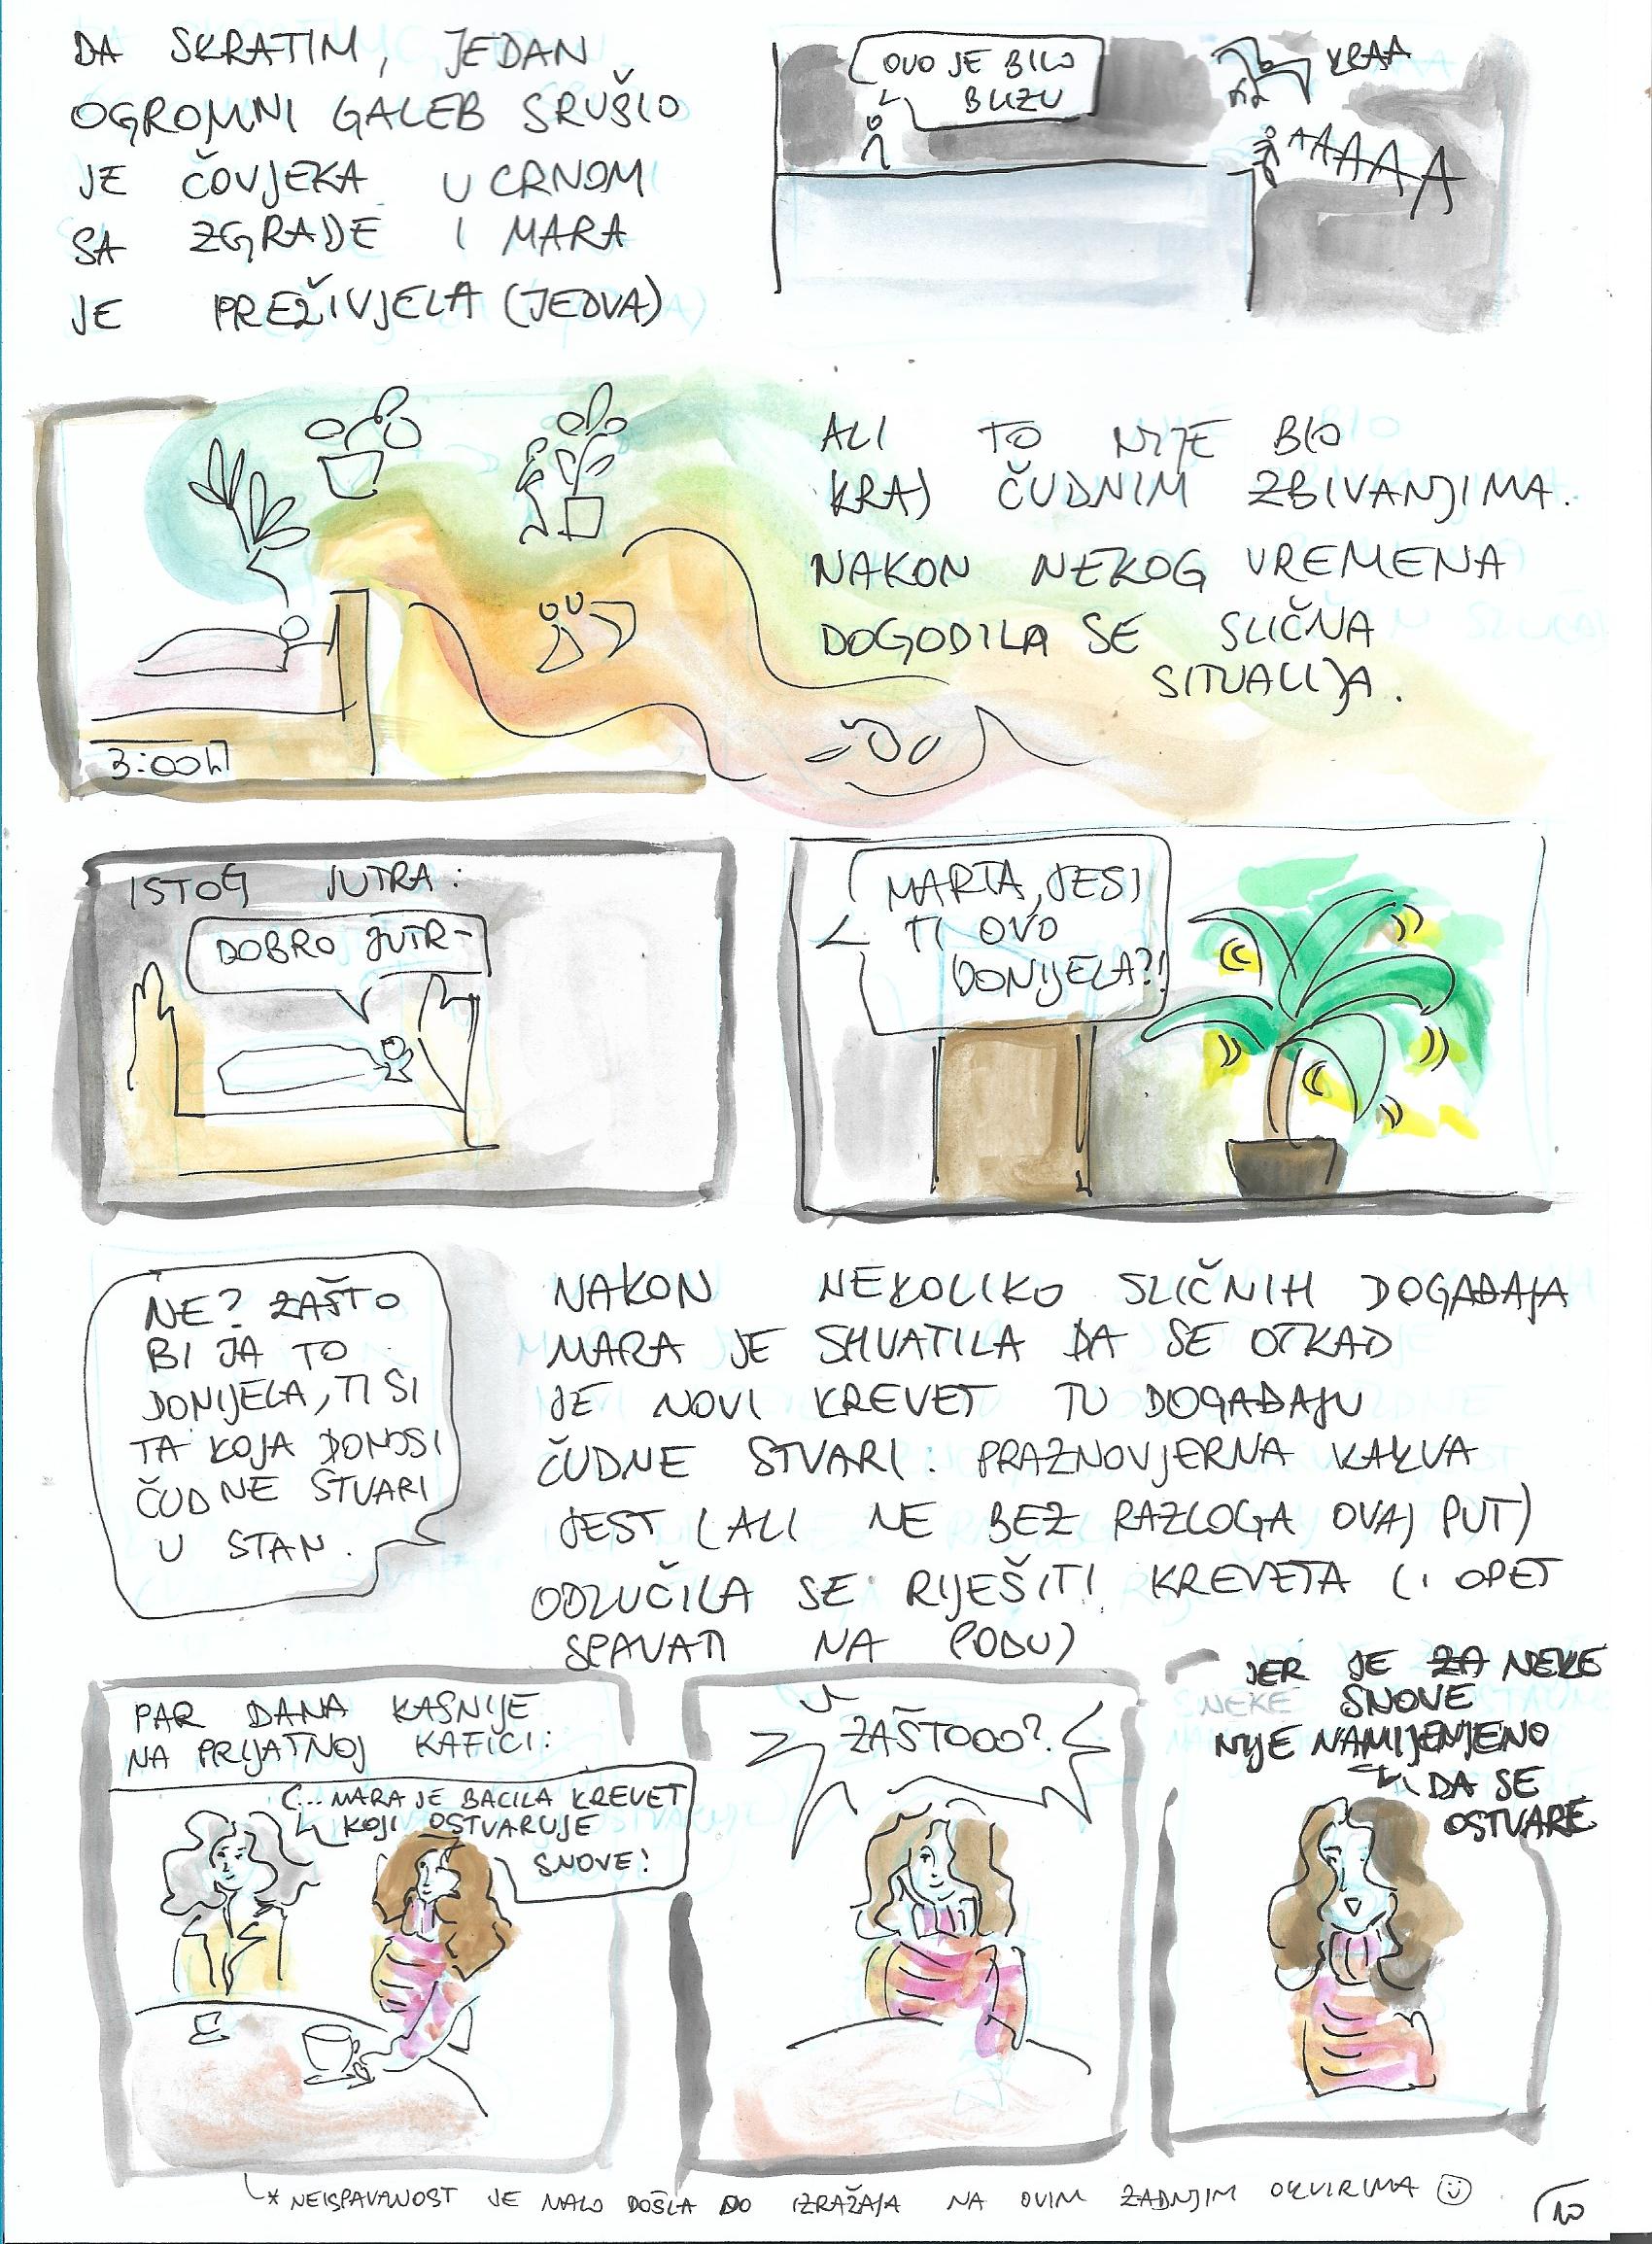 DA SKRATIM, JEDAN
OGROMNI GALEB SRUŠIO
JE ČOVJEKA U CRNOM
SA ZGRADE I MARA
JE PREŽIVJELA (JEDVA)
OVO JE BILO
BLIZU
KRAA
AAAAAA
ALI TO NIJE BIO
KRAJ ČUDNIM ZBIVANJIMA.
NAKON NEKOG VREMENA
DOGODILA SE SLIČNA
SITUACIJA.
3:00h
ISTOG JUTRA:
DOBRO JUTR-
MARTA, JESI
TI OVO
DONIJELA?!
NE? ZAŠTO
BI JA TO
DONIJELA, TI SI
TA KOJA DONOSI
ČUDNE STVARI
U STAN.
NAKON NEKOLIKO SLIČNIH DOGAĐAJA
MARA JE SHVATILA DA SE OTKAD
JE NOVI KREVET TU DOGAĐAJU
ČUDNE STVARI. PRAZNOVJERNA KAKVA
JEST (ALI NE BEZ RAZLOGA OVAJ PUT)
ODLUČILA SE RIJEŠITI KREVETA (I OPET
SPAVATI NA PODU)
PAR DANA KASNIJE
NA PRIJATNOJ KAFICI:
(... MARA JE BACILA KREVET
KOJI OSTVARUJE
SNOVE!
ZAŠTOOO?
JER JE ZA NEKE
SNOVE
NIJE NAMIJENJENO
DA SE
OSTVARE
* NEISPAVANOST JE MALO DOŠLA DO IZRAŽAJA NA OVIM ZADNJIM OKVIRIMA ☺
10